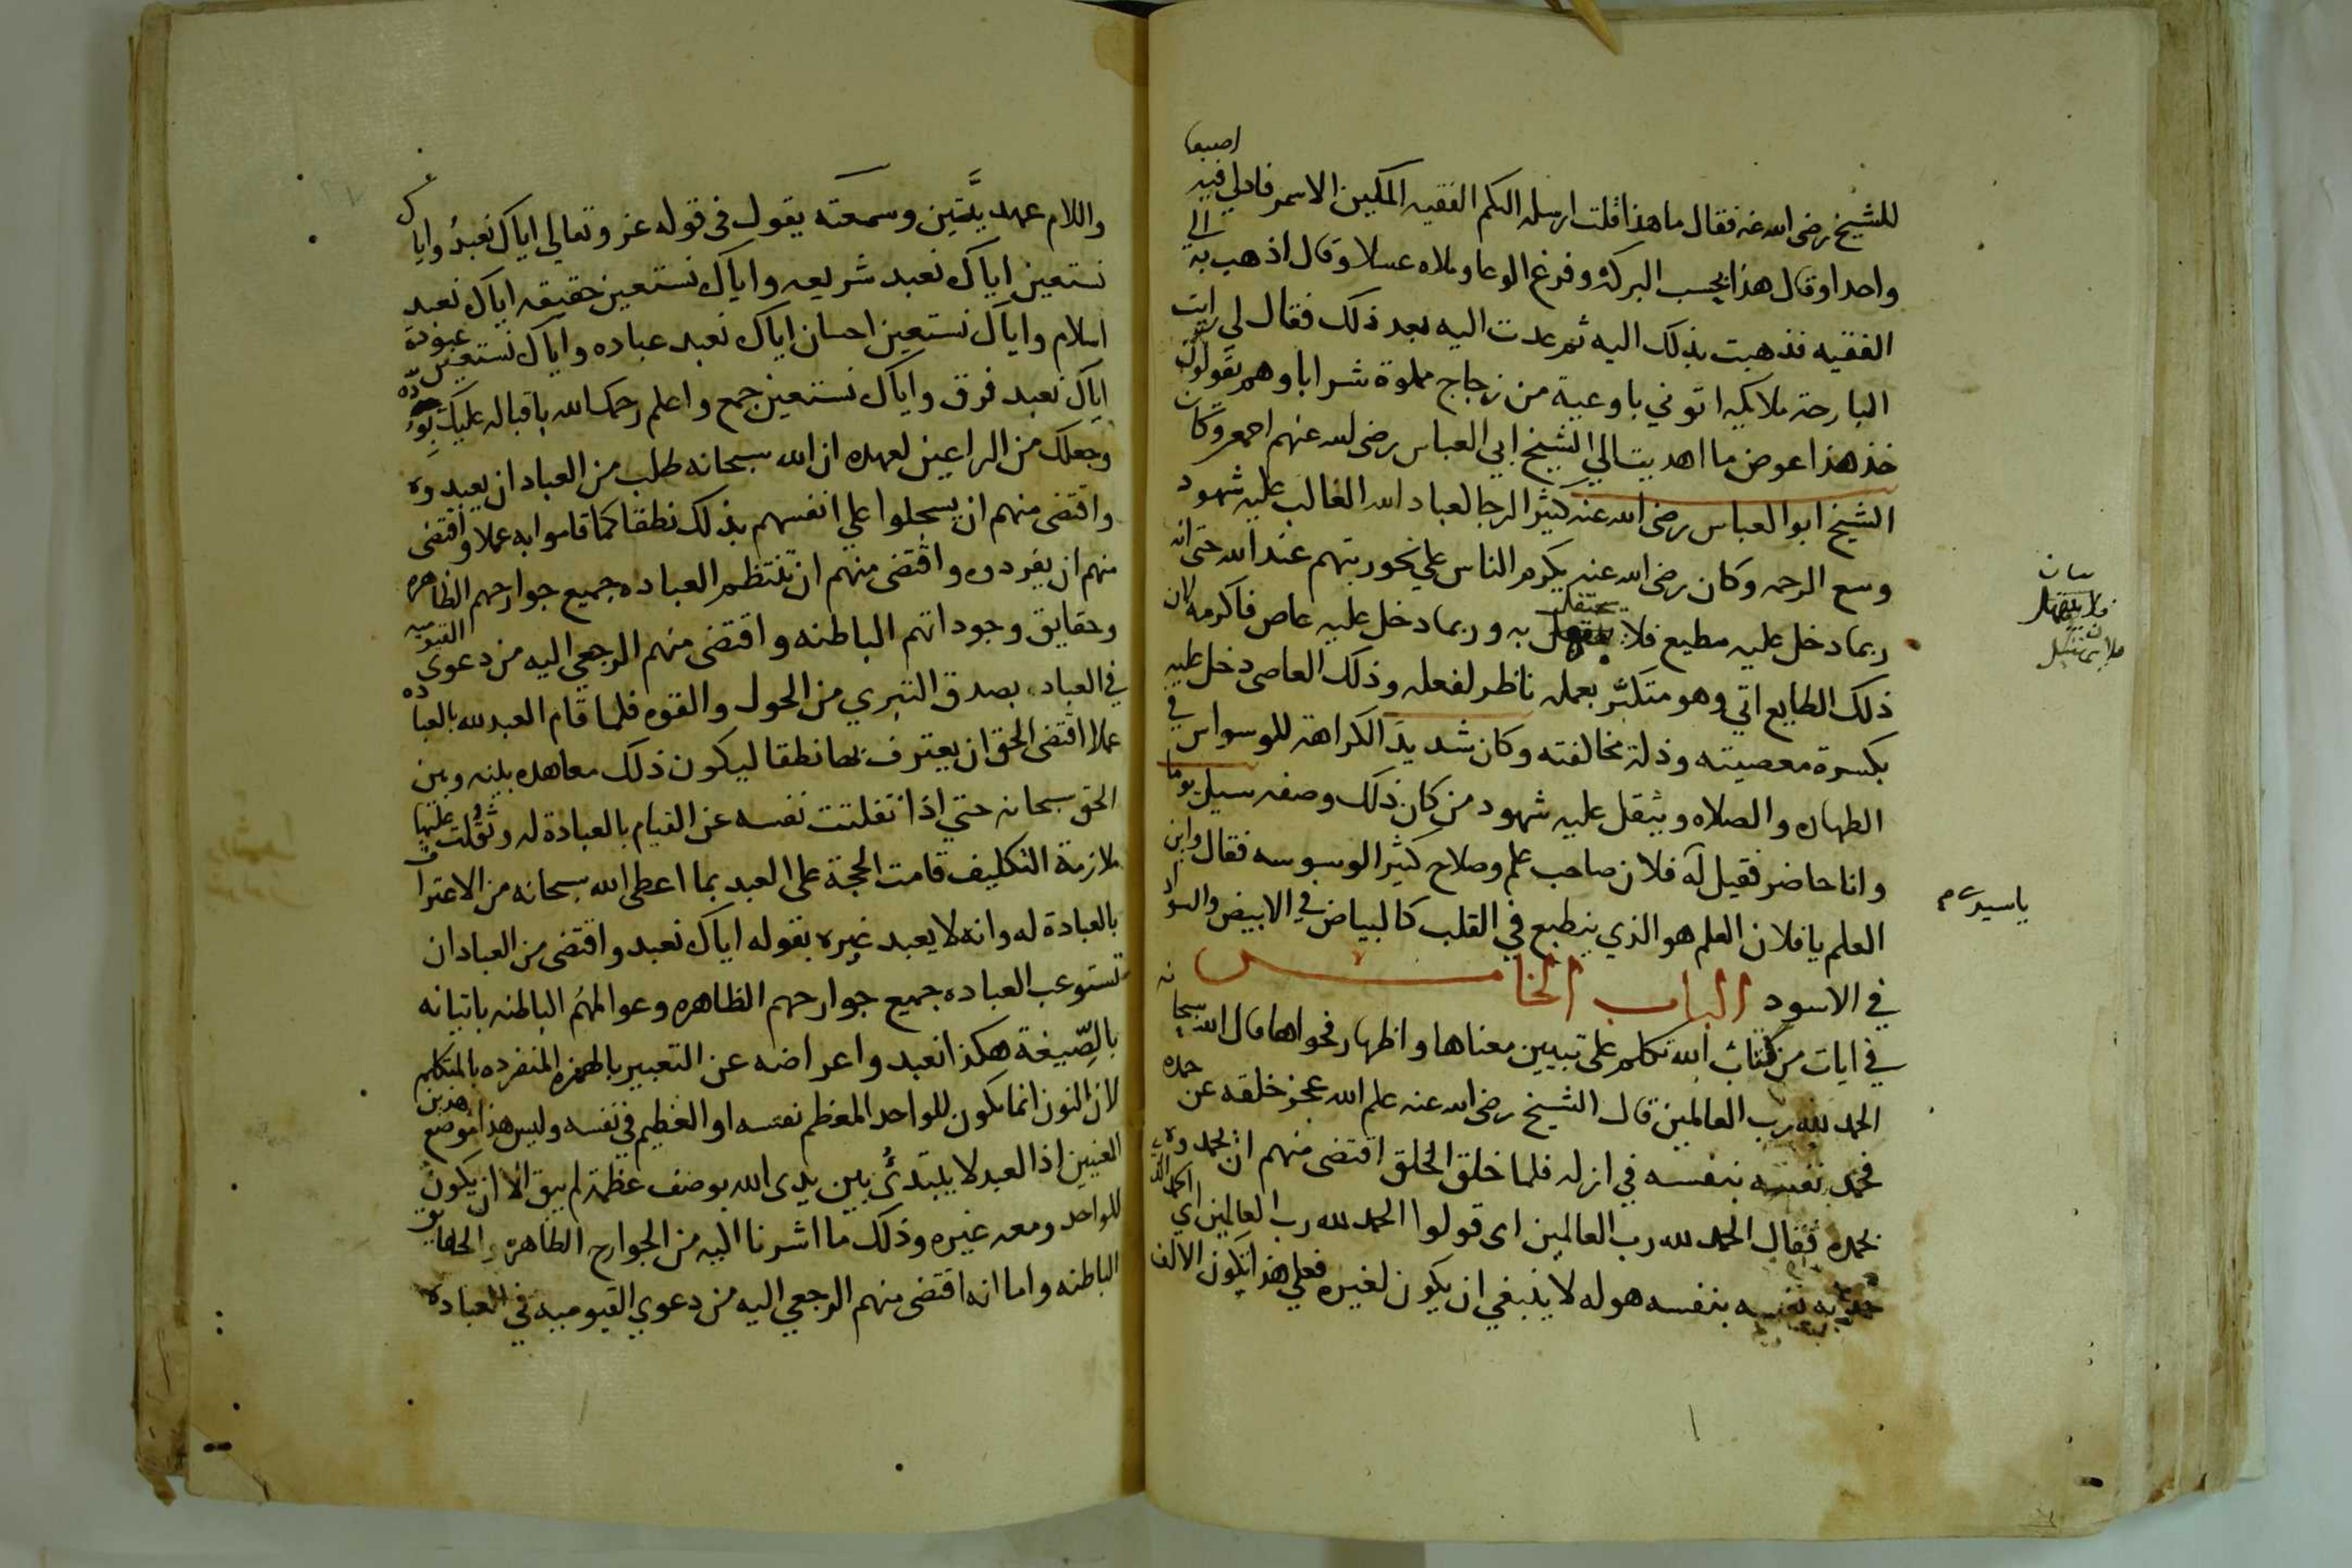 للشيخ رضى الله عنه فقال ما هذا قلت ارسله اليكم الفقيه المكين الاسمر فادلي فيه اصبعا
واحدا وقال هذا بحسب البركة وفرغ الوعا وملاه عسلا وقال اذهب به الي
الفقيه فذهبت بذلك اليه ثم عدت اليه بعد ذلك فقال لي رايت
البارحة ملايكه اتوني باوعية من زجاج مملوة شرابا وهم يقولون
خذ هذا عوض ما اهديت الي الشيخ ابي العباس رضى الله عنهم اجمع وكان
الشيخ ابو العباس رضى الله عنه كثير الرجا لعباد الله الغالب عليه شهود
وسع الرحمه وكان رضى الله عنه يكرم الناس علي نحو رتبهم عند الله حتى انه
ربما دخل عليه مطيع فلا يحتفل به وربما دخل عليه عاص فاكرمه لان
ذلك الطايع اتي وهو متكثر بعمله ناظر لفعله وذلك العاصى دخل عليه
بكسرة معصيته وذلة مخالفته وكان شديد الكراهة للوسواس في
الطهاره والصلاه ويثقل عليه شهود من كان ذلك وصفه سيل يوما
وانا حاضر فقيل له فلان صاحب علم وصلاح كثير الوسوسه فقال واين
العلم يا فلان العلم هو الذي ينطبع في القلب كالبياض في الابيض والسواد
في الاسود الباب الخامس
في ايات من كتاب الله تكلم على تبيين معناها واظهار فحواها قال الله سبحانه
الحمد لله رب العالمين قال الشيخ رضى الله عنه علم الله عجز خلقه عن حمده
فحمد نفسه بنفسه في ازله فلما خلق الخلق اقتضى منهم ان يحمدوه
بحمده فقال الحمد لله رب العالمين اى قولوا الحمد لله رب العالمين اي الحمد الذي
حمد به نفسه بنفسه هو له لا ينبغي ان يكون لغيره فعلي هذا تكون الالف
يا سيدي م
واللام عهديتين وسمعته يقول فى قوله عز وتعالي اياك نعبد واياك
نستعين اياك نعبد شريعه واياك نستعين حقيقه اياك نعبد
اسلام واياك نستعين احسان اياك نعبد عباده واياك نستعين عبودة
اياك نعبد فرق واياك نستعين جمع واعلم رحمك الله باقباله عليك
وجعلك من الراعين لعهده ان الله سبحانه طلب من العباد ان يعبدوه
واقتضى منهم ان يسجلوا علي انفسهم بذلك نطقا كما قاموا به عملا واقتضى
منهم ان يفردوه واقتضى منهم ان تنتظم العباده جميع جوارحهم الظاهره
وحقايق وجوداتهم الباطنه واقتضى منهم الرجعي اليه من دعوى القيوميه
في العباده بصدق التبري من الحول والقوه فلما قام العبد لله بالعباده
عملا اقتضى الحق ان يعترف بها نطقا ليكون ذلك معاهده بينه وبين
الحق سبحانه حتي اذا تفلتت نفسه عن القيام بالعبادة له وثقلت عليها
ملازمة التكليف قامت الحجة على العبد بما اعطى الله سبحانه من الاعتراف
بالعبادة له وانه لا يعبد غيره بقوله اياك نعبد واقتضى من العباد ان
تستوعب العباده جميع جوارحهم الظاهره وعوالمهم الباطنه باتيانه
بالصيغة هكذا نعبد واعراضه عن التعبير بالهمزه المنفرده بالمتكلم
لان النون انما يكون للواحد المعظم نفسه او العظيم في نفسه وليس هذا موضع هدين
المعنيين اذ العبد لا يبتدئ بين يدى الله بوصف عظمة لم يبق الا ان يكون
للواحد ومعه غيره وذلك ما اشرنا اليه من الجوارح الظاهره والحقايق
الباطنه واما انه اقتضى منهم الرجعي اليه من دعوي القيوميه في العبادة